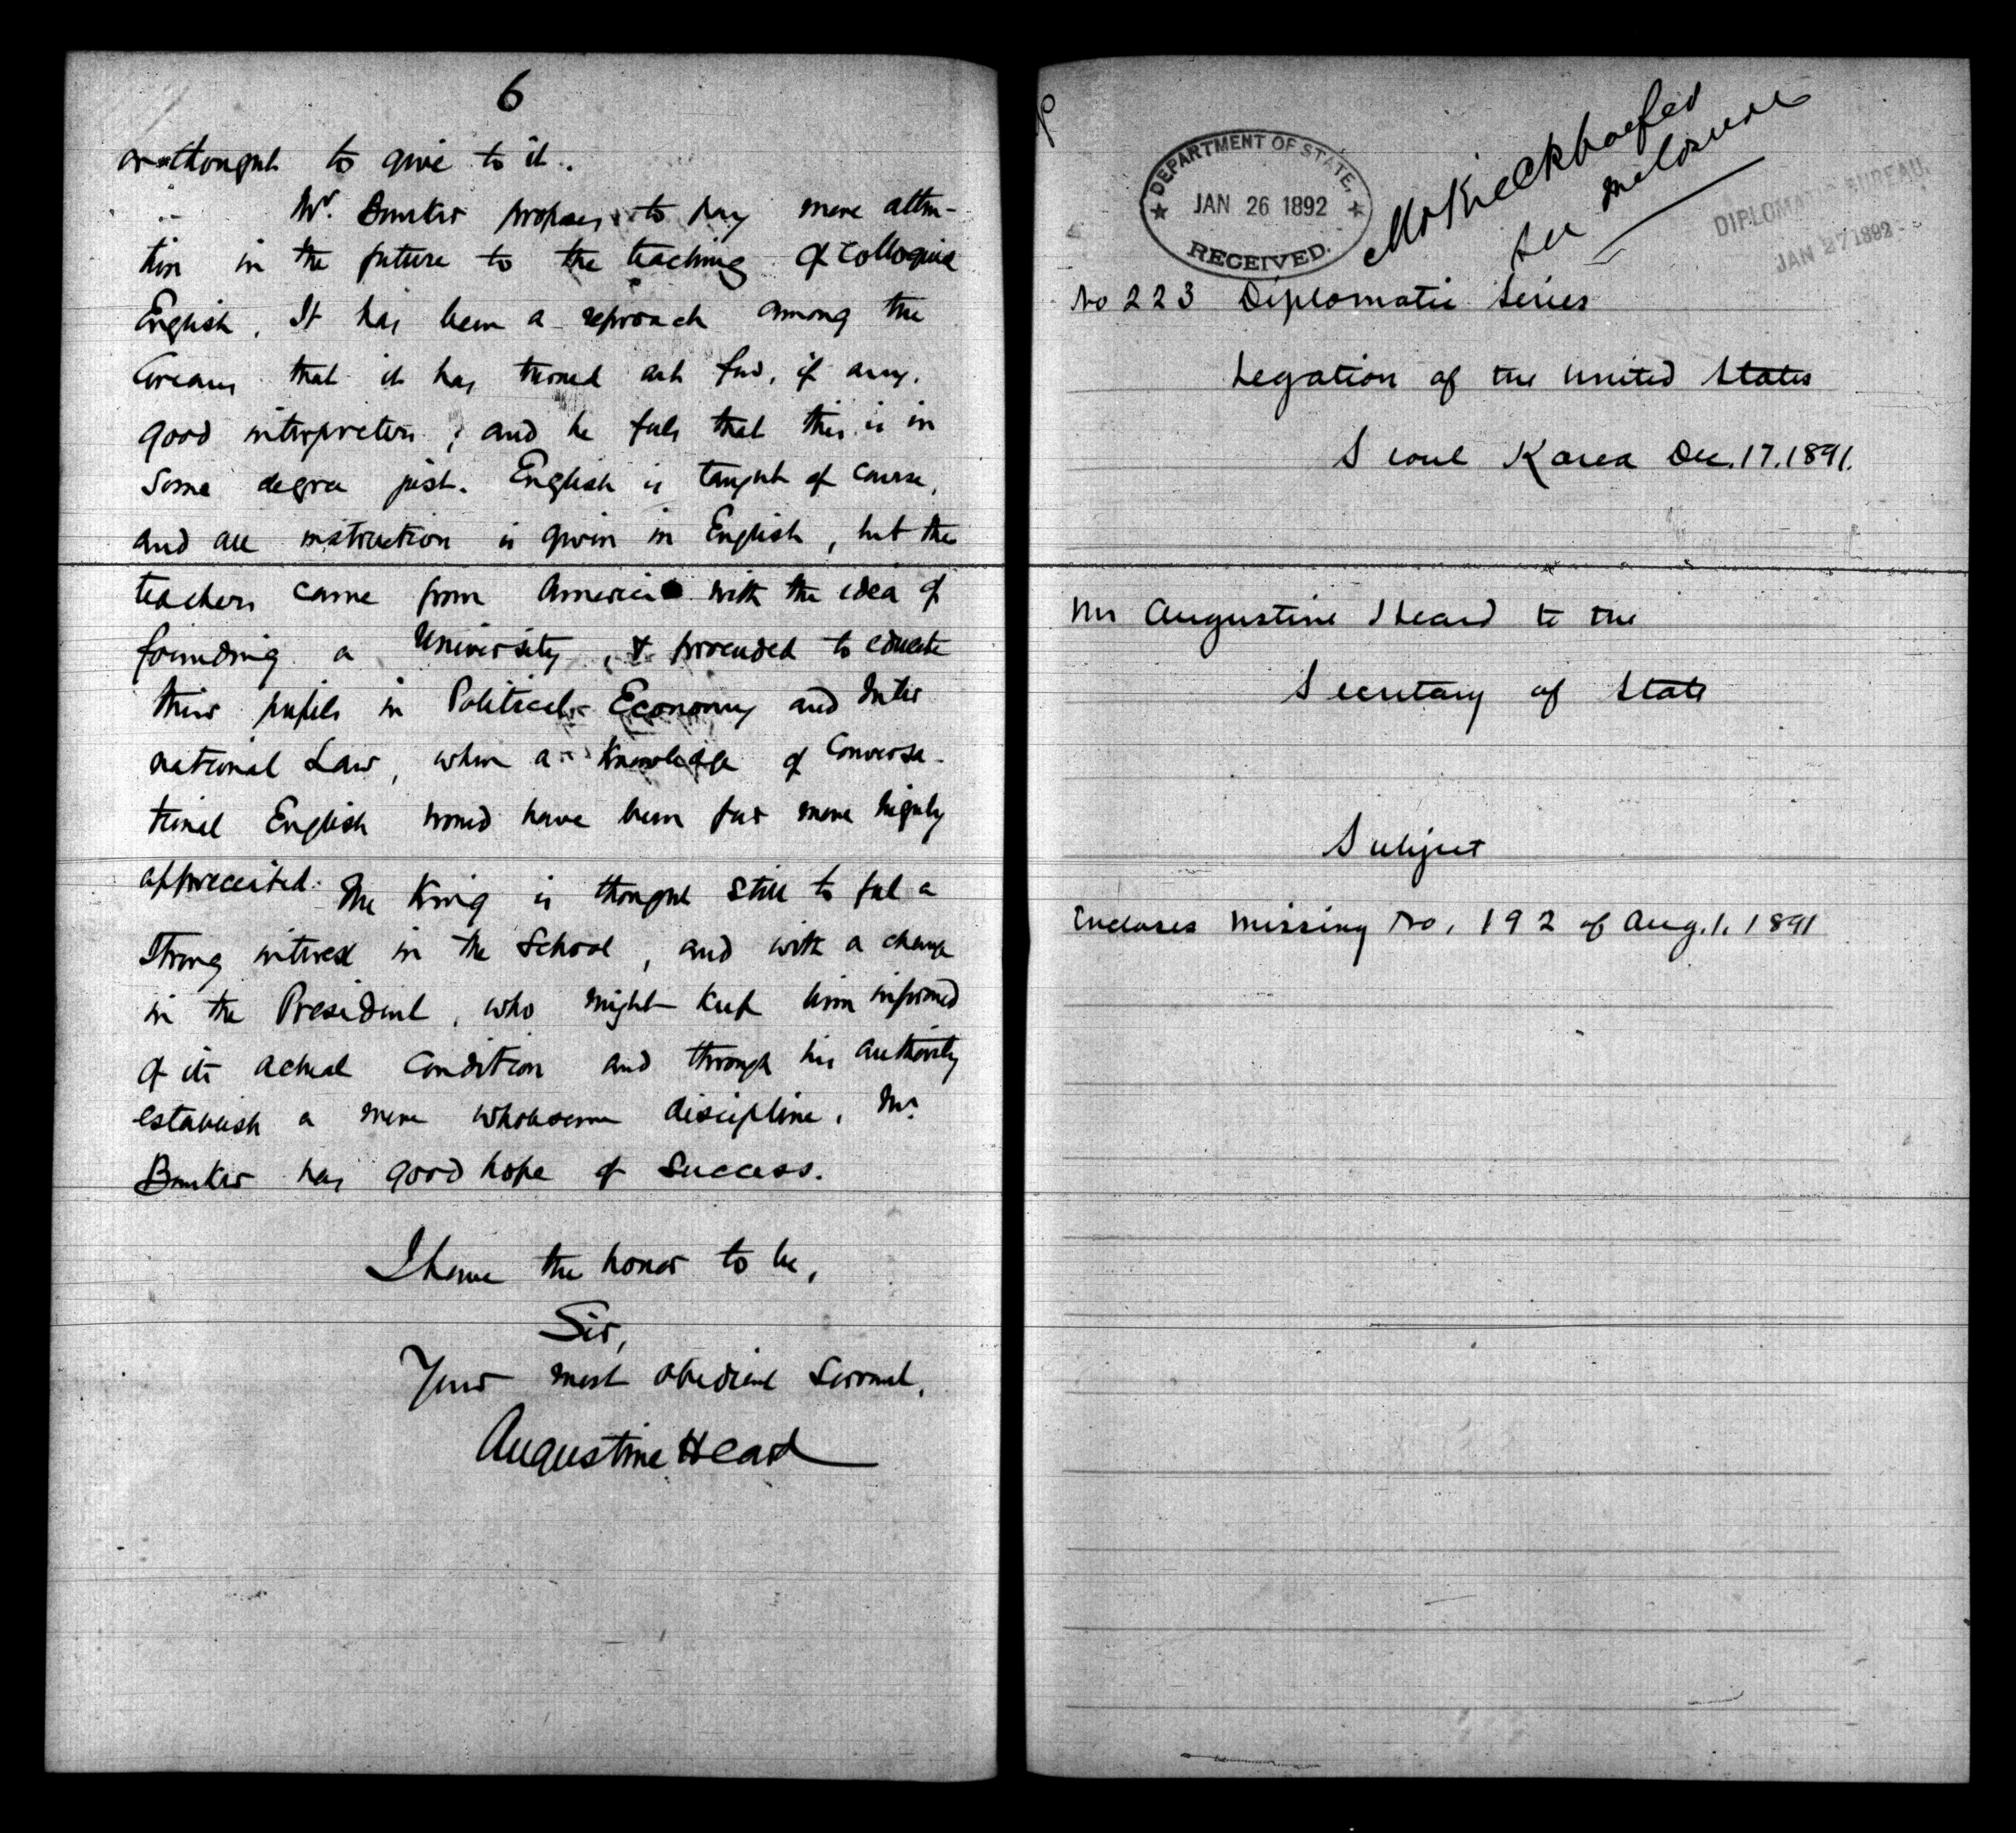 6
or thought to give to it.
Mr. Bunker proposes to pay more atten-
tion in the future to the teaching of Colloquial
English. It has been a reproach among the
Coreans that it has turned out few, if any,
good interpreters; and he feels that this is in
some degree just. English is taught of course,
and all instruction is given in English, but the
teachers came from America with the idea of
founding a University, & proceeded to educate
their pupils in Political Economy and Inter
national Law, when a knowledge of Conversa-
tional English would have been far more highly
appreciated. The King is thought still to feel a
strong interest in the School, and with a change
in the President, who might keep him informed
of its actual condition and through his authority
establish a more wholesome discipline, Mr.
Bunker has good hope of success.
I have the honor to be,
Sir,
Your most obedient servant,
Augustine Heard
DEPARTMENT OF STATE,
JAN 26 1892
RECEIVED.
Mr Kieckhoefer
see enclosure
DIPLOMATIC BUREAU,
JAN 27 1892
No 223 Diplomatic Series
Legation of the United States
Seoul Korea Dec. 17. 1891.
Mr Augustine Heard to the
Secretary of State
Subject
Encloses missing No. 192 of Aug. 1. 1891